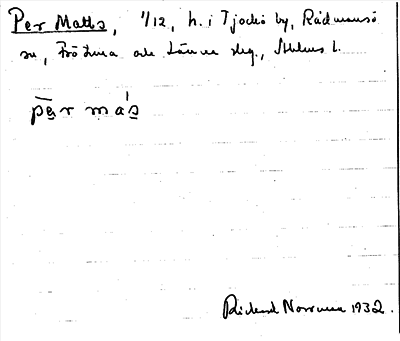 Per Matts, 1/12, h. i Tjockö by, Rådmansö
sn, Frötuna och Länna skg., Sthlms l.
pär mas
Rickard Norrman 1932.